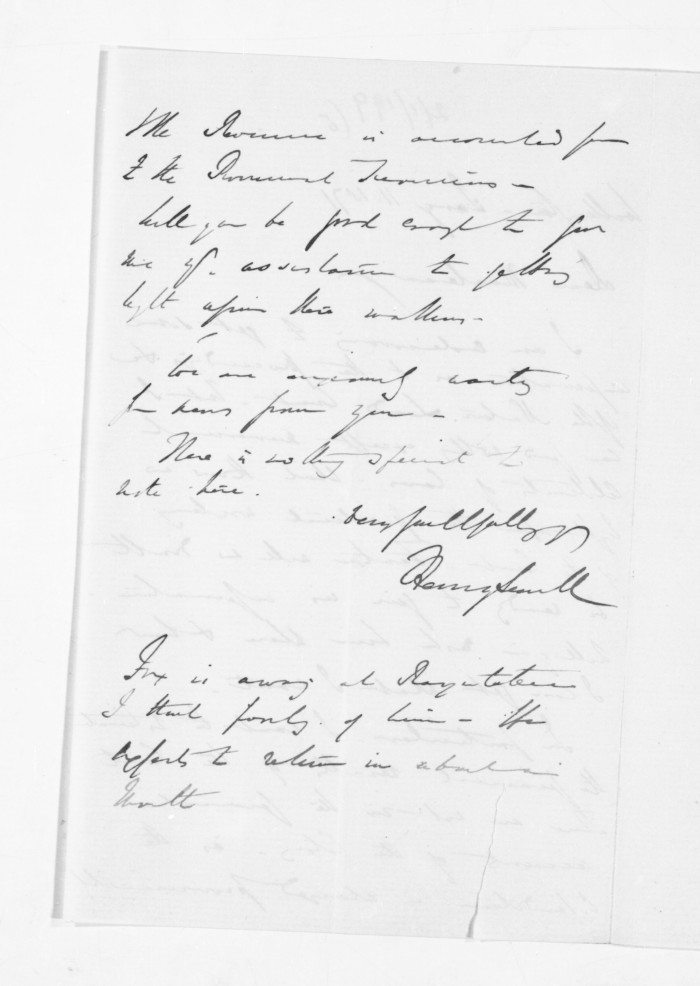 & the Revenue is accounted for
to the Provincial Treasuries –
Will you be good enough to give
me yr. assistance to getting
light upon these matters –
We are anxiously waiting
for news from you –
There is nothing special to
note here.
Very faithfully yrs
Henry Sewell
Fox is away at Rangitikei
I think of him – He
expects to return in about a
Month